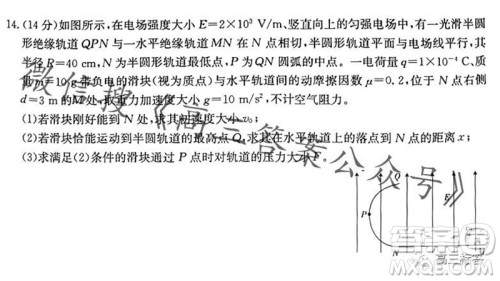 14.(14分)如图所示,在电场强度大小E=2×10³ V/m、竖直向上的匀强电场中,有一光滑半圆
形绝缘轨道QPN与一水平绝缘轨道MN在N点相切,半圆形轨道平面与电场线平行,其
半径R=40 cm,N为半圆形轨道最低点,P为QN圆弧的中点。一电荷量q=1×10⁻⁴ C、质
量m=10 g带负电的滑块(视为质点)与水平轨道间的动摩擦因数μ=0.2,位于N点右侧
d=3 m的M处,取重力加速度大小g=10 m/s²,不计空气阻力。
(1)若滑块刚好能到N处,求其初速度大小v₀;
(2)若滑块恰能运动到半圆轨道的最高点Q,求其在水平轨道上的落点到N点的距离x;
(3)求满足(2)条件的滑块通过P点时对轨道的压力大小F。
Q
E
P
N
微信搜《高三答案公众号》
高三答案